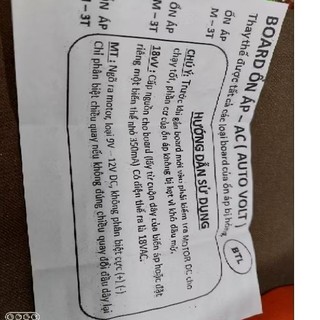 BOARD ỔN ÁP – AC ( AUTO VOLT )
Thay thế được tất cả các loại board của ổn áp bị hỏng
BTL
ỔN ÁP
M – 3T
ỔN ÁP
M – 3T
ỔN ÁP
M – 3T
HƯỚNG DẪN SỬ DỤNG
CHÚ Ý: Trước khi gắn board mới vào phải kiểm tra MOTOR DC cho
chạy tốt, phần cơ của ổn áp không bị kẹt vì khô dầu mỡ.
18VV : Cấp nguồn cho board (lấy từ cuộn dây của biến áp hoặc đặt
riêng một biến thế nhỏ 350mA) Có điện thế ra là 18VAC.
MT : Ngõ ra motor, loại 9V – 12V DC, không phân biệt cực (+) (-)
Chỉ phân biệt chiều quay nếu không đúng chiều quay đổi đầu dây lại